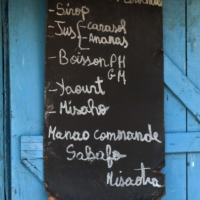 - Sirop
- Jus { carasol
Ananas
- Boisson PM
GM
- Yaourt
- Misaho
Manao commande
Sabafo
Misaotra